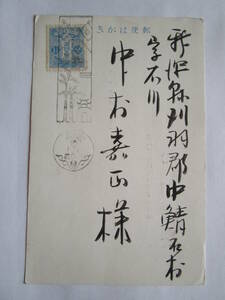 郵便はがき
新潟縣刈羽郡中鯖石村
字石川
中村嘉正様